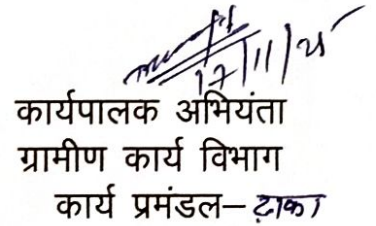 17/11/25
कार्यपालक अभियंता
ग्रामीण कार्य विभाग
कार्य प्रमंडल– ढ़ाका